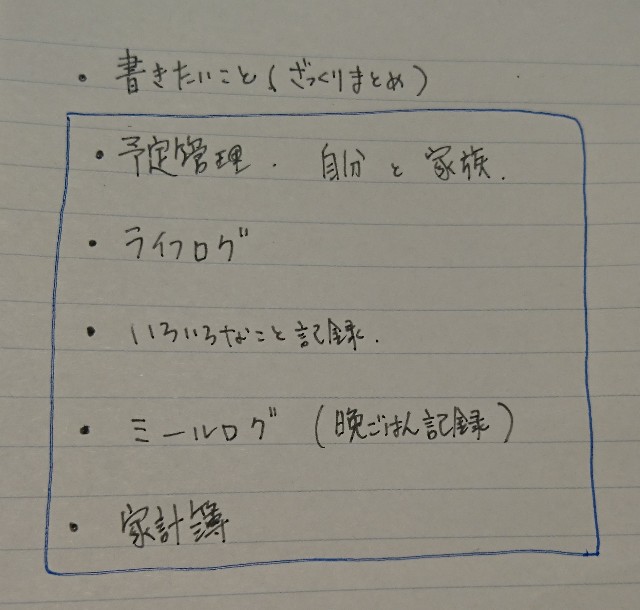 ・書きたいこと(ざっくりまとめ)
・予定管理. 自分と家族.
・ライフログ
・いろいろなこと記録.
・ミールログ (晩ごはん記録)
・家計簿